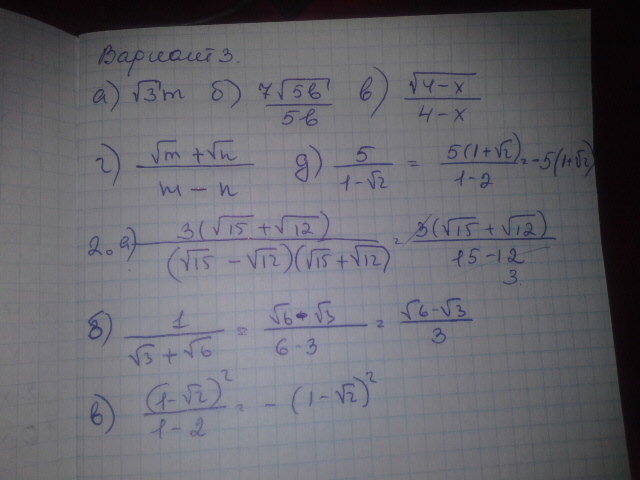 Вариант 3.
а) √3m б) 7√5b / 5b в) √4-x / 4-x
г) √m + √n / m - n д) 5 / 1-√2 = 5(1+√2) / 1-2 = -5(1+√2)
2. а) 3(√15 + √12) / (√15 - √12)(√15 + √12) = 3(√15 + √12) / 15-12 3
б) 1 / √3 + √6 = √6-√3 / 6-3 = √6-√3 / 3
в) (1-√2)² / 1-2 = - (1-√2)²